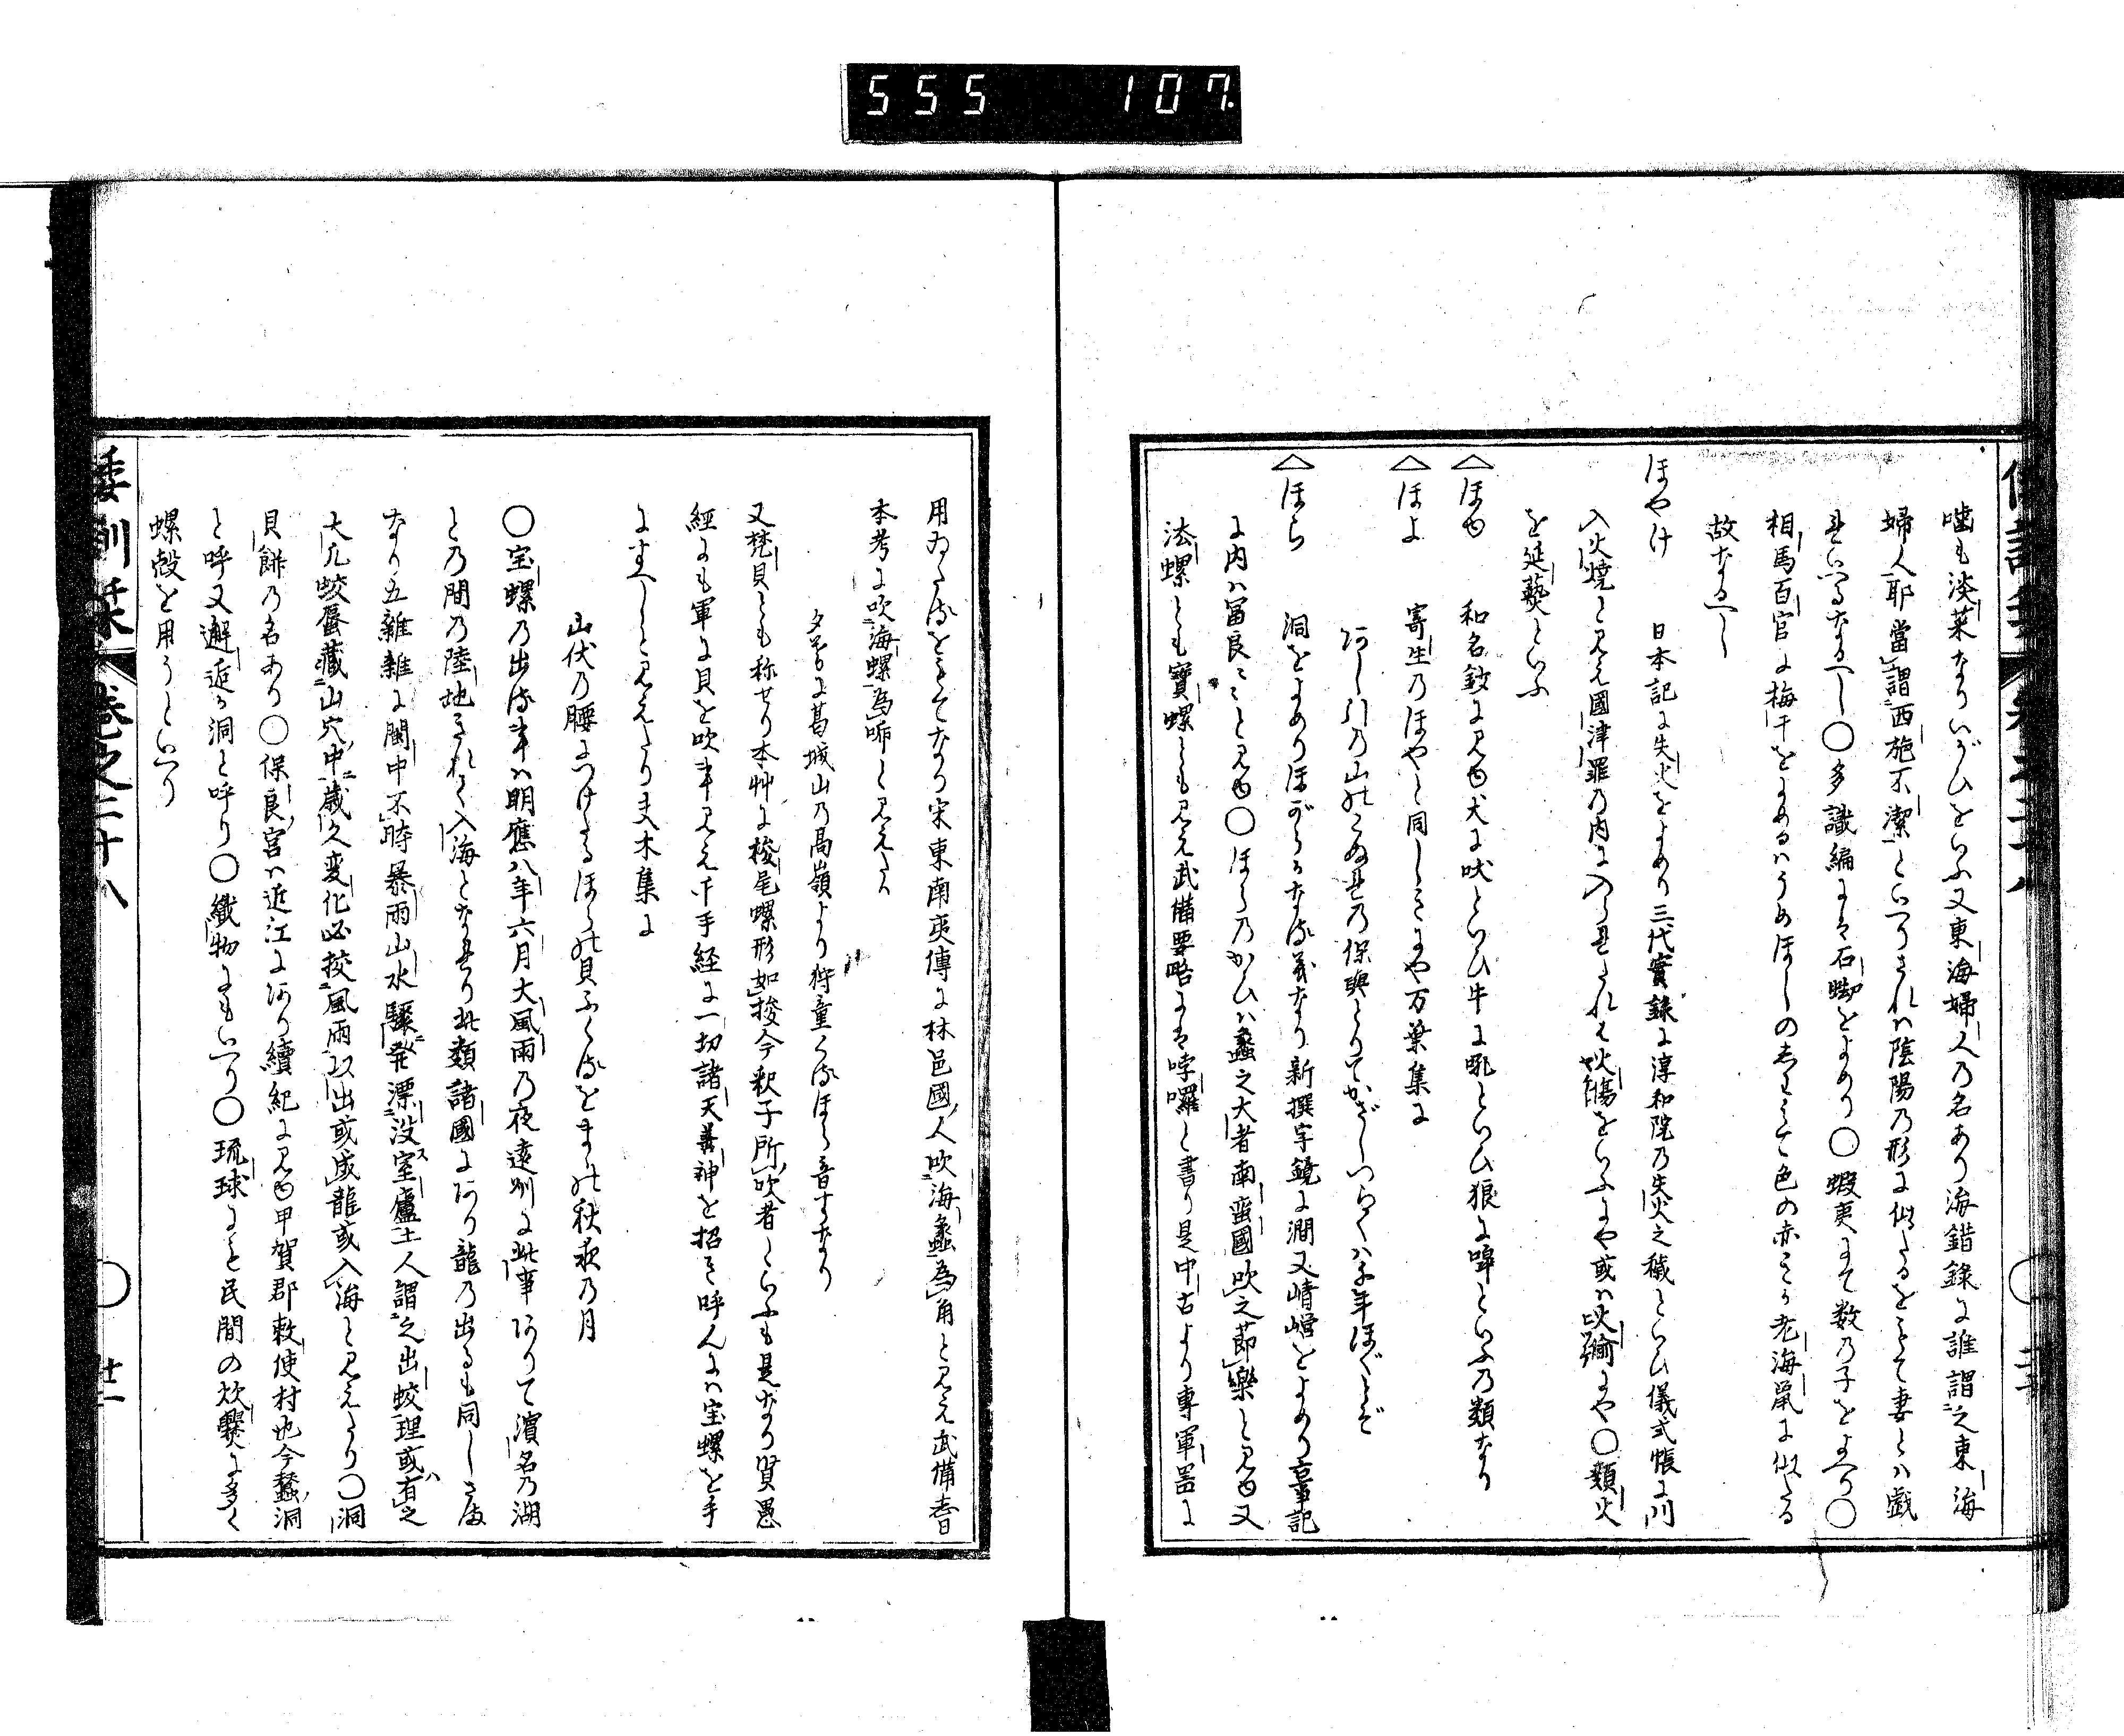 555 107.
嗑も淡菜なりいがひをいふ又東海婦人の名あり海錯錄に誰謂之東海
婦人耶當謂西施不潔といへりされハ陰陽の形に似たるをもて妻とハ戯
れいへるなるへし〇多識編には石蜐をよめり〇蝦夷にて数の子をよへり〇
相馬百官に梅干をよめるハうめほしの志わよりて色の赤きか老海鼠に似たる
故なるへし
ほやけ 日本記に失火をよめり三代實錄に淳和院の失火之穢といひ儀式帳に川
入火燒と見え國津罪の内に入られたれは火傷をいふにや或ハ にや〇類火
を延爇といふ
△ほゆ 和名鈔に見ゆ犬に吠といひ牛に吼といひ狼に嘷といふの類なり
△ほよ 寄生のほやと同しきにや万葉集に
あし引の山のこぬれの保與とりてかざしつらくハ千年ほぐとぞ
△ほら 洞をよめりほがらかなる義なり新撰字鏡に澗又崝嶒をよめり古事記
に内ハ冨良ミミと見ゆ〇ほらのかひハ蠡之大者南蛮國吹之節樂と見ゆ又
法螺とも寶螺とも見え武備要略には哱囉と書り是中古より專軍噐に
用ゐたるをもてなり宋東南夷傳に林邑國人吹海蠡為角と見え武備志
本考に吹海螺為哱と見えたり
夕されに葛城山の高嶺より狩童くたるほら音すなり
又梵貝とも称せり本艸に梭尾螺形如梭今釈子所吹者といふも是なり賢愚
經にも軍に貝を吹事見え千手経に一切諸天善神を招き呼んにハ宝螺を手
にすへしと見えたり夫木集に
山伏の腰につけたるほらの貝ふくるまゝの秋夜の月
〇宝螺の出る事ハ明應八年六月大風雨の夜遠州に此事ありて濱名の湖
との間の陸地きれて入海となれり此類諸國にあり龍の出るも同しさま
なり五雜雜に閩中不時暴雨山水驟発漂没室廬土人謂之出蛟理或有之
大凡蛟蜃藏山穴中歲久変化必挍風雨以出或成龍或入海と見えたり〇洞
貝餅の名あり〇保良宮ハ近江にあり續紀に見ゆ甲賀郡敕使村也今蠡洞
と呼又邂逅か洞と呼り〇織物にもいへり〇琉球にも民間の炊爨に多く
螺殼を用うといへり
倭訓栞 卷之二十八 〇 廿一